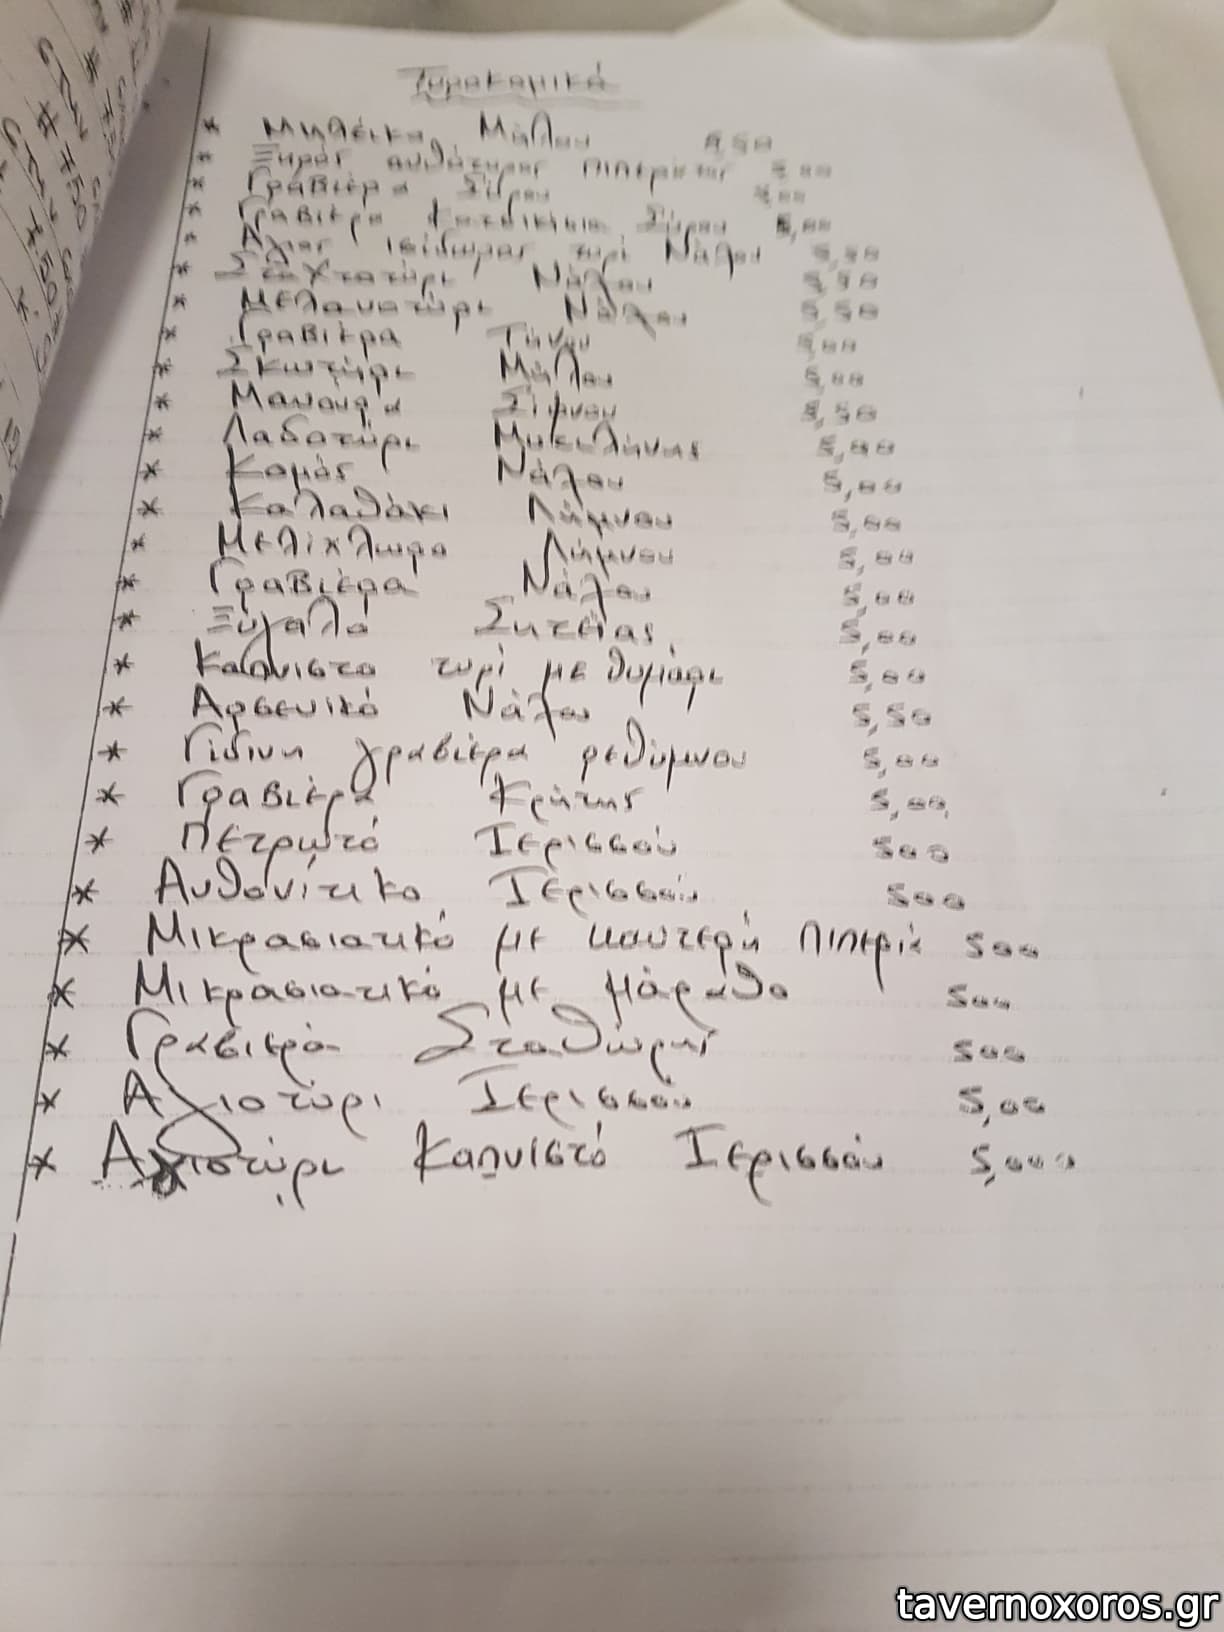 Τυροκομικά
* Μηλέικο Μήλου 5,50
* Ξηρός ανθότυρος πιπεράτος 5,00
* Γραβιέρα Σύρου 5,00
* Γραβιέρα Κατσικίσια Σύρου 5,00
* Αγίας Ισίδωρας τυρί Νάξου 5,50
* Σταχτοτύρι Νάξου 5,50
* Μελανοτύρι Νάξου 5,50
* Γραβιέρα Τήνου 5,00
* Σκωτύρι Μήλου 5,00
* Μανούρα Σίφνου 5,50
* Λαδοτύρι Μυτιλήνης 5,00
* Κομός Νάξου 5,00
* Καλαθάκι Λήμνου 5,00
* Μελίχλωρο Λήμνου 5,00
* Γραβιέρα Νάξου 5,00
* Ξύγαλο Σητείας 5,00
* Καπνιστο τυρί με θυμάρι 5,00
* Αρσενικό Νάξου 5,50
* Γίδινη γραβιέρα ρεθύμνου 5,00
* Γραβιέρα Κρήτης 5,00
* Πετρωτό Ιερισσού 500
* Ανθονίτικο Ιερισσού 500
* Μικρασιατικό με καυτερή πιπεριά 500
* Μικρασιατικό με μάραθο 500
* Γραβιερα Σταθώρης 500
* Αγιοτύρι Ιερισσού 5,00
* Αγιοτύρι Καπνιστό Ιερισσού 5,000
# 750
# 750
tavernoxoros.gr